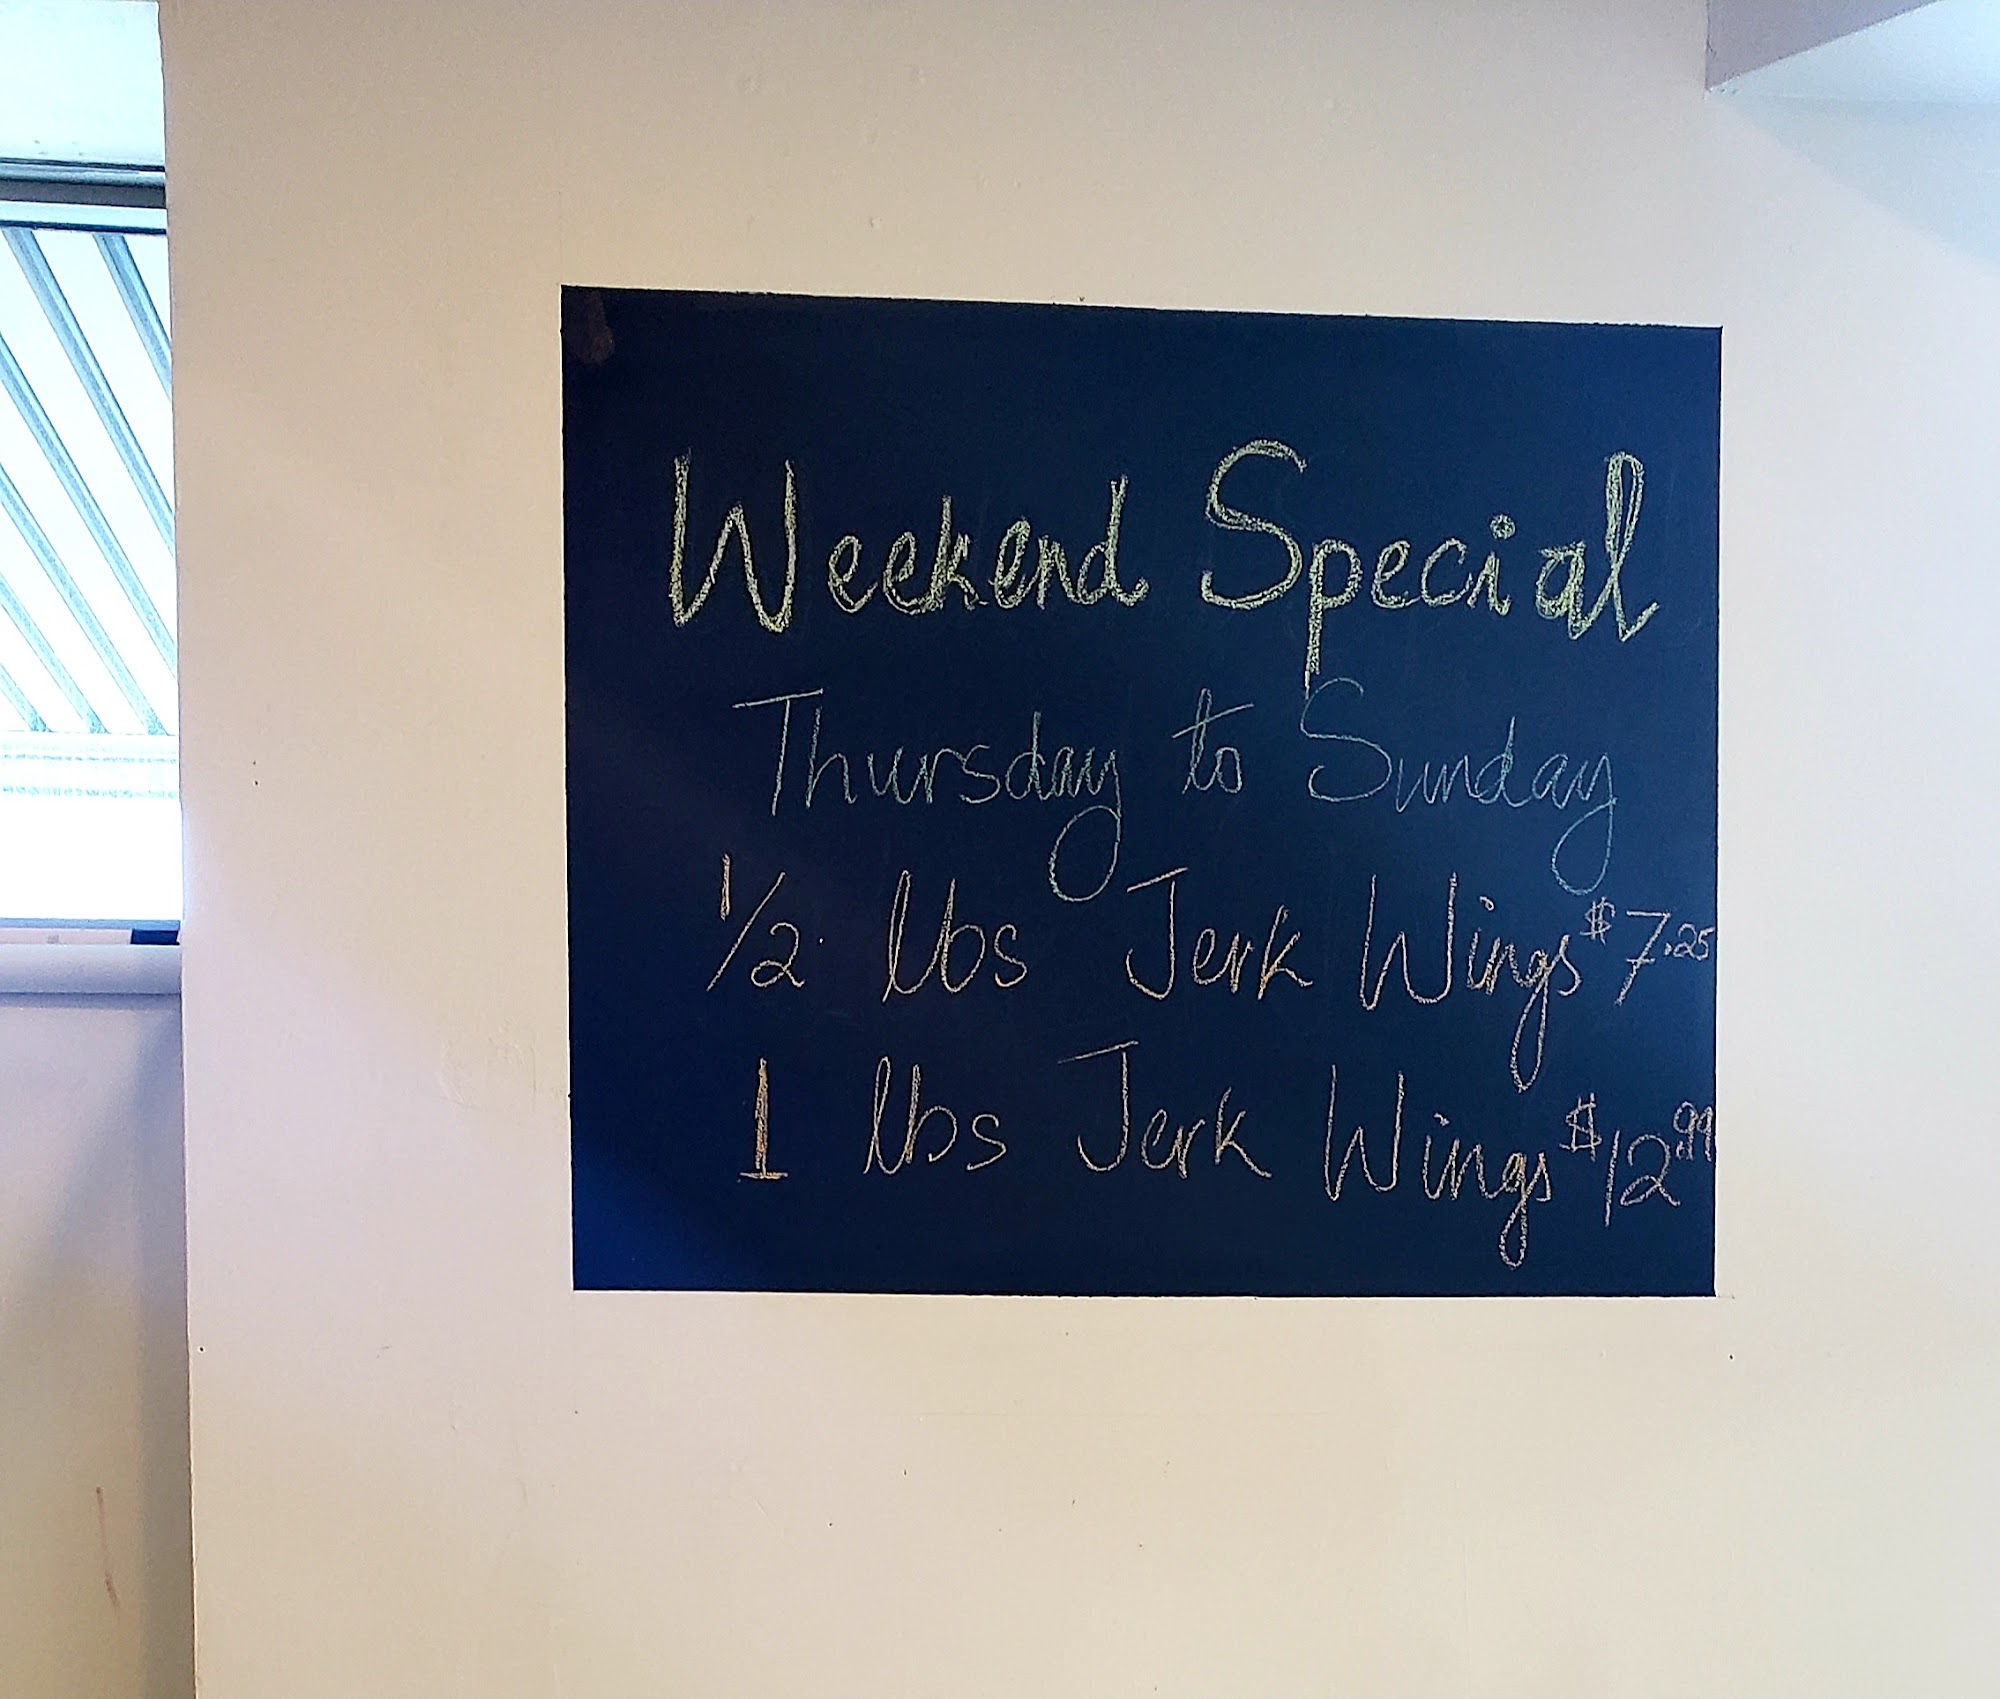 Weekend Special
Thursday to Sunday
1/2 lbs Jerk Wings $7.25
1 lbs Jerk Wings $12.99